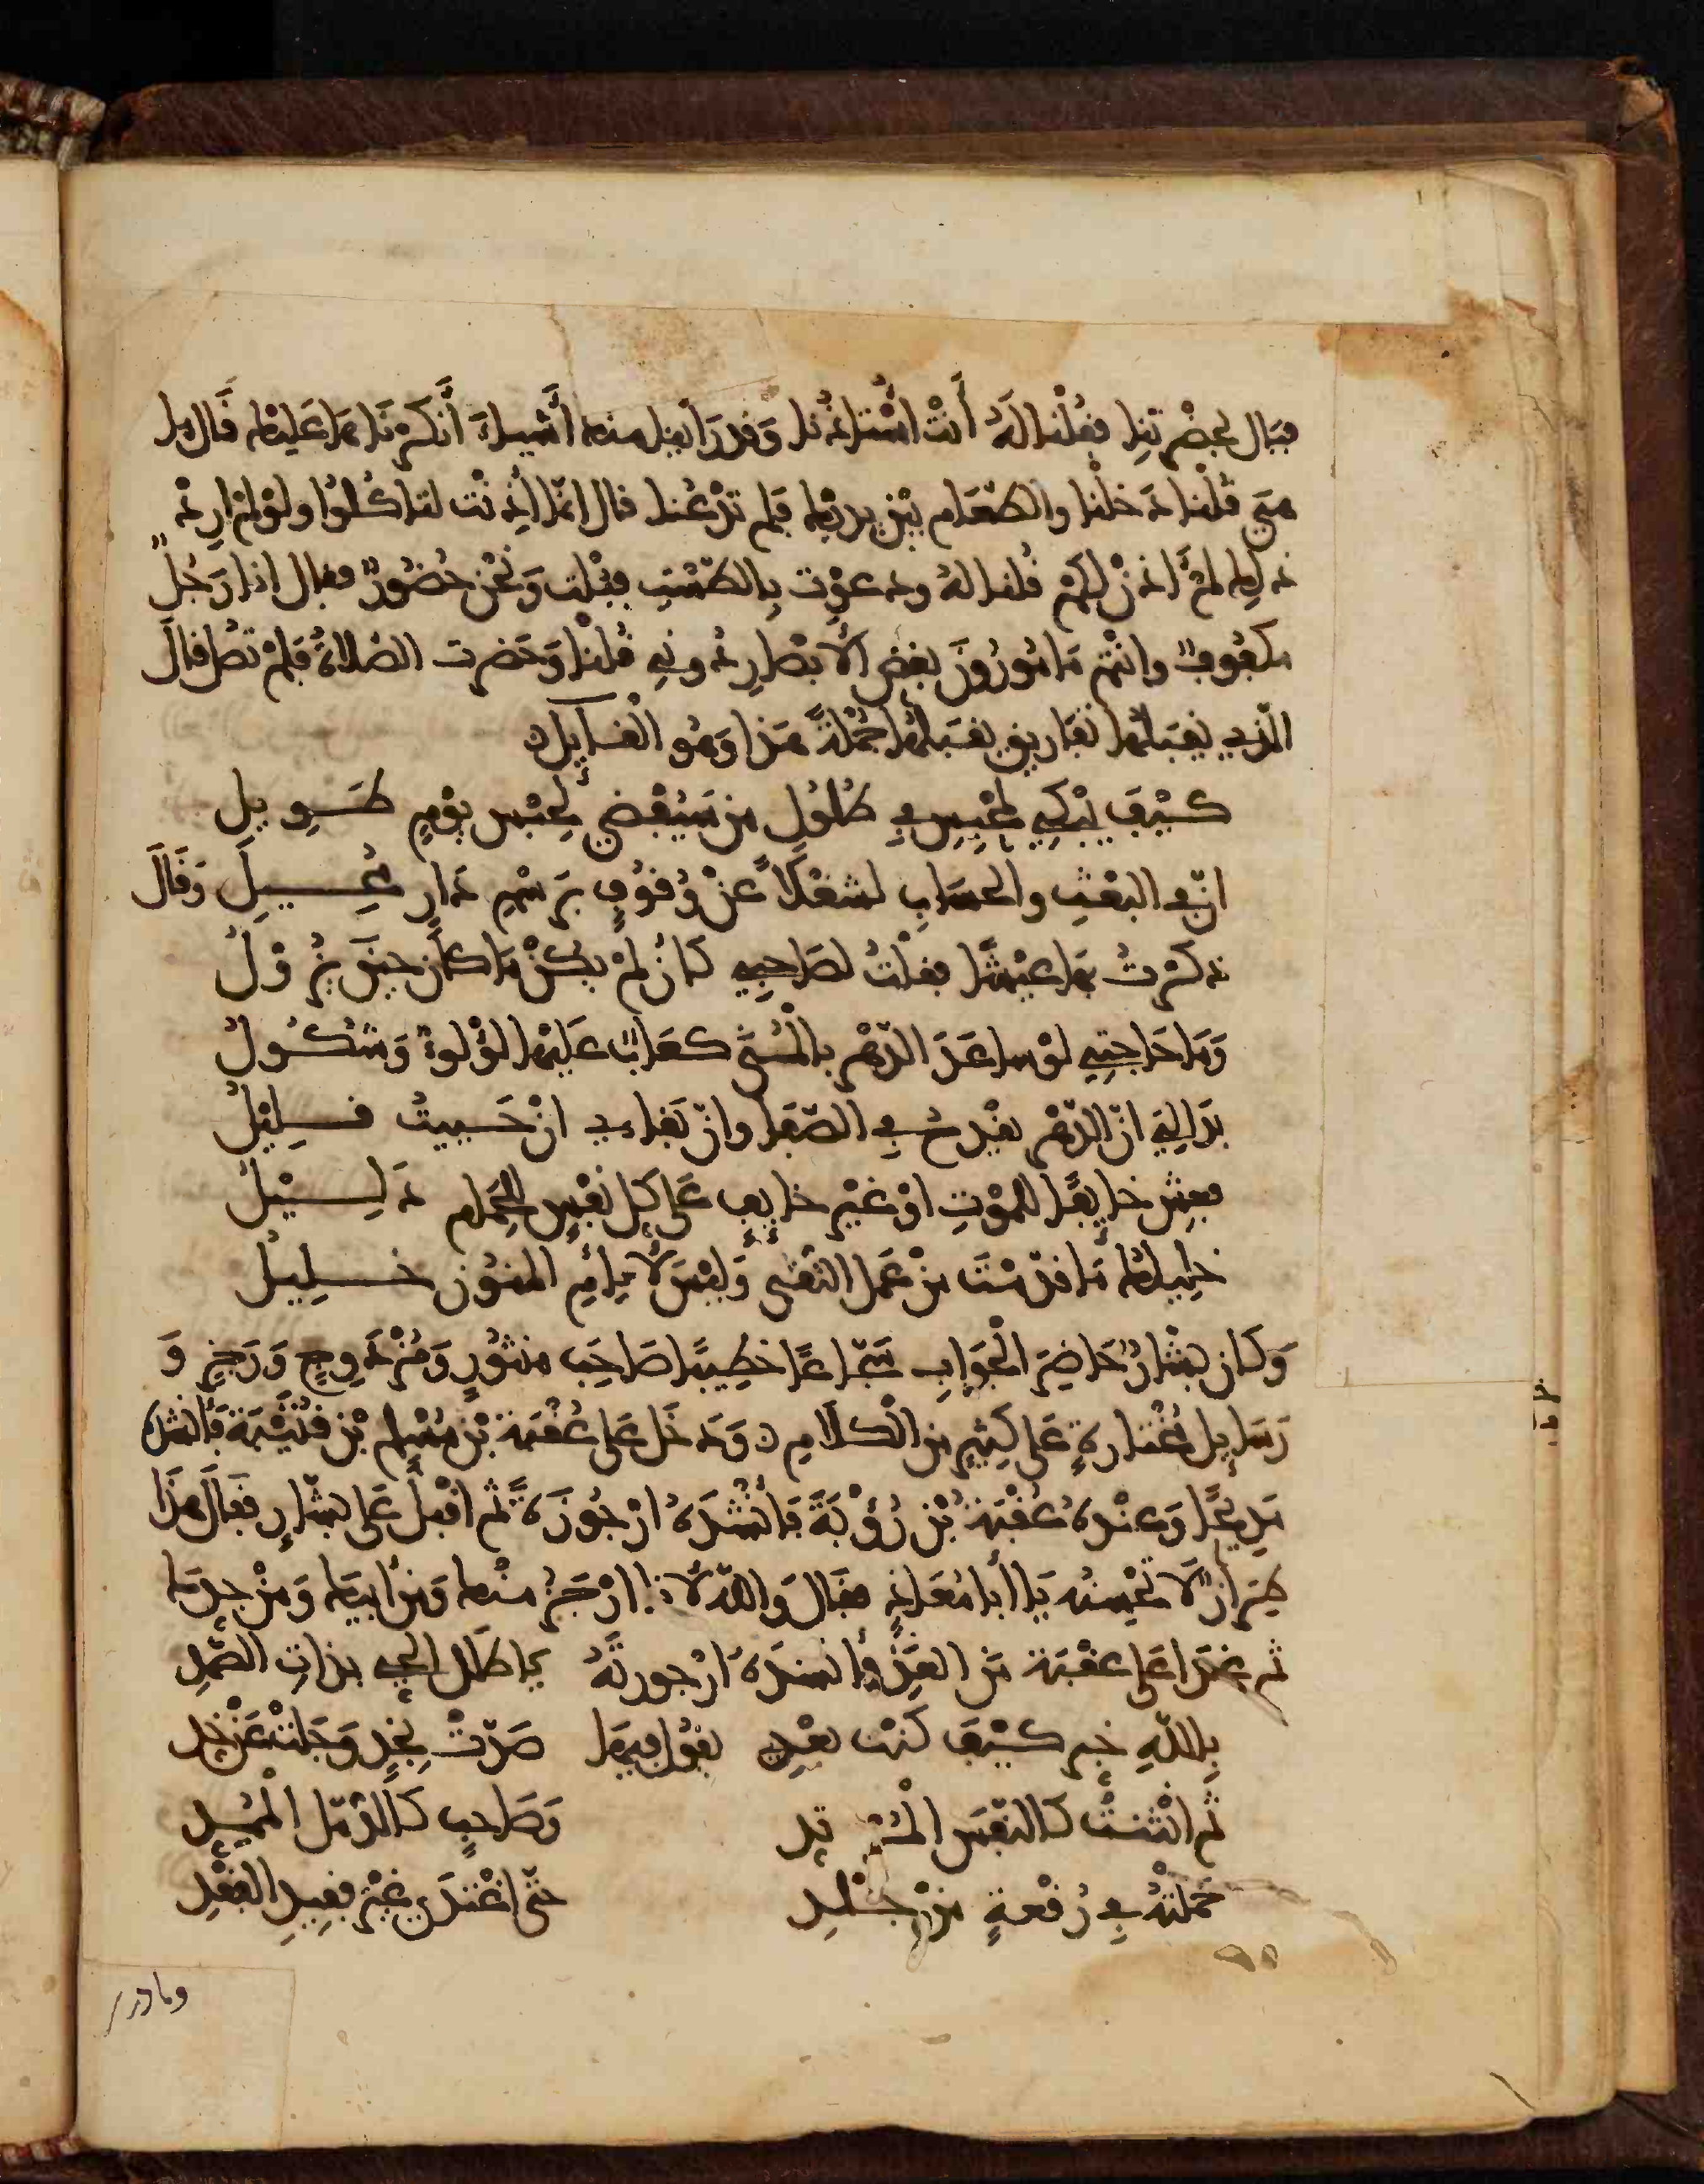 فبال بحضرتنا فقلنا له أنت استاذنا وقد رأينا منك أشياء أنكرناها عليك قال وما
هي قلنا دخلنا والطعام بين يديك فلم تدعنا قال انما اذنت لتاكلوا ولو لم ارد
ذلك لم آذن لكم قلنا له ودعوت بالطست فبلت ونحن حضور فقال انا رجل
مكفوف وانتم مامورون بغض الابصار دوني قلنا وحضرت الصلاة فلم تصل قال
الذي يقبلها تفاريق يقبلها جملة هذا وهو القائل
كيف يبكي لمحبس في طلول من سيقضي لحبس يوم طويل
ان في البعث والحساب لشغلا عن وقوف برسم دار محيل وقال
ذكرت بها عيشا فقلت لصاحبي كان لم يكن ما كان حين يزول
وما حاجتي لو ساعد الدهر بالمنى كعاب عليها لؤلؤ وشكول
بدا لي ان الدهر يقدح في الصفا وان بقاءي ان حييت قليل
فعش خايفا للموت او غير خايف على كل نفس للحمام دليل
خليلك ما قدمت من عمل التقى وليس لايام المنون خليل
وكان بشار حاضر الجواب سجاعا خطيبا صاحب منثور ومزدوج ورجز و
رسايل مختارة على كثير من الكلام ودخل على عقبة بن مسلم بن قتيبة فأنشده
مديحا وعنده عقبة بن رؤبة فأنشده ارجوزة ثم اقبل على بشار فقال هذا
طراز لا تحسنه يا أبا معاذ فقال والله لانا ارجز منك ومن أبيك ومن جدك
ثم غدا على عقبة من الغد وأنشده ارجوزته يا طلل الحي بذات الصمد
بالله خبر كيف كنت بعدي يقول فيها صدت بخد وجلت عن خد
ثم انثنت كالنفس المرتد وصاحب كالدمل الممد
حملته في رقعة من جلدي حتى اغتدى غير فقيد الفقد